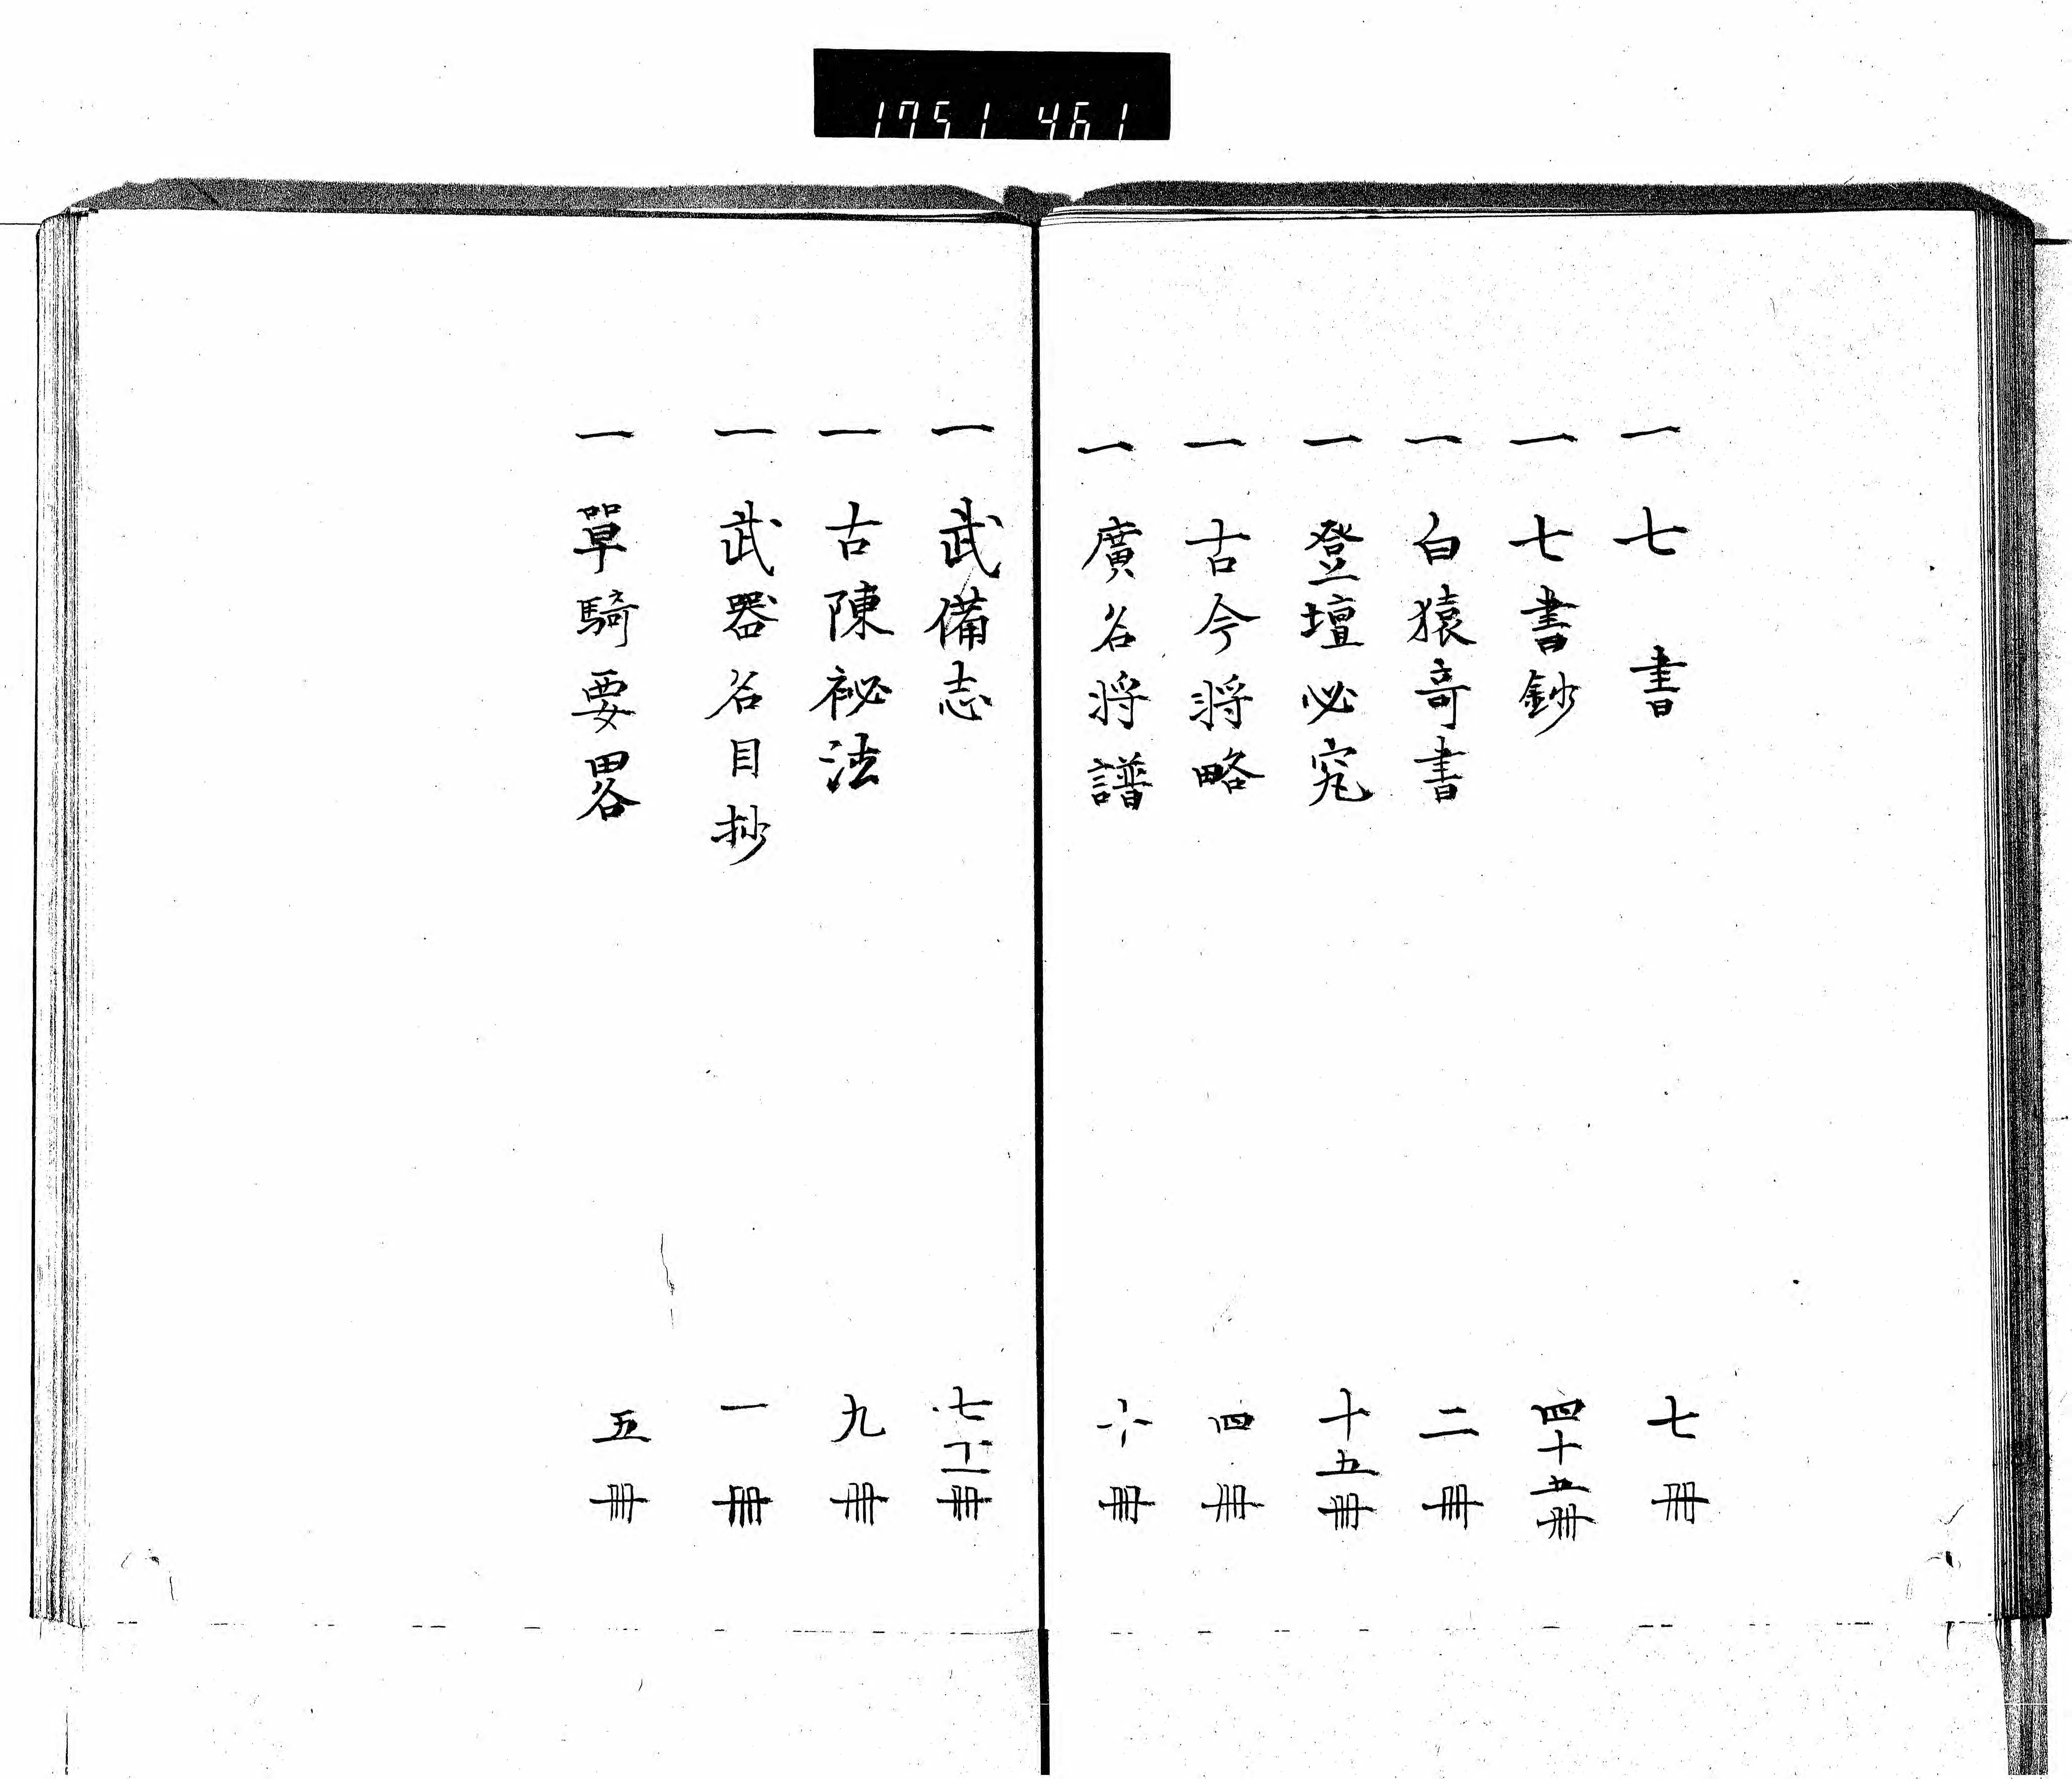 1751 461
一 七書 七冊
一 七書鈔 四十五冊
一 白猿奇書 二冊
一 登壇必究 十五冊
一 古今将略 四冊
一 廣名将譜 十冊
一 武備志 七十二冊
一 古陳祕法 九冊
一 武器名目抄 一冊
一 單騎要畧 五冊